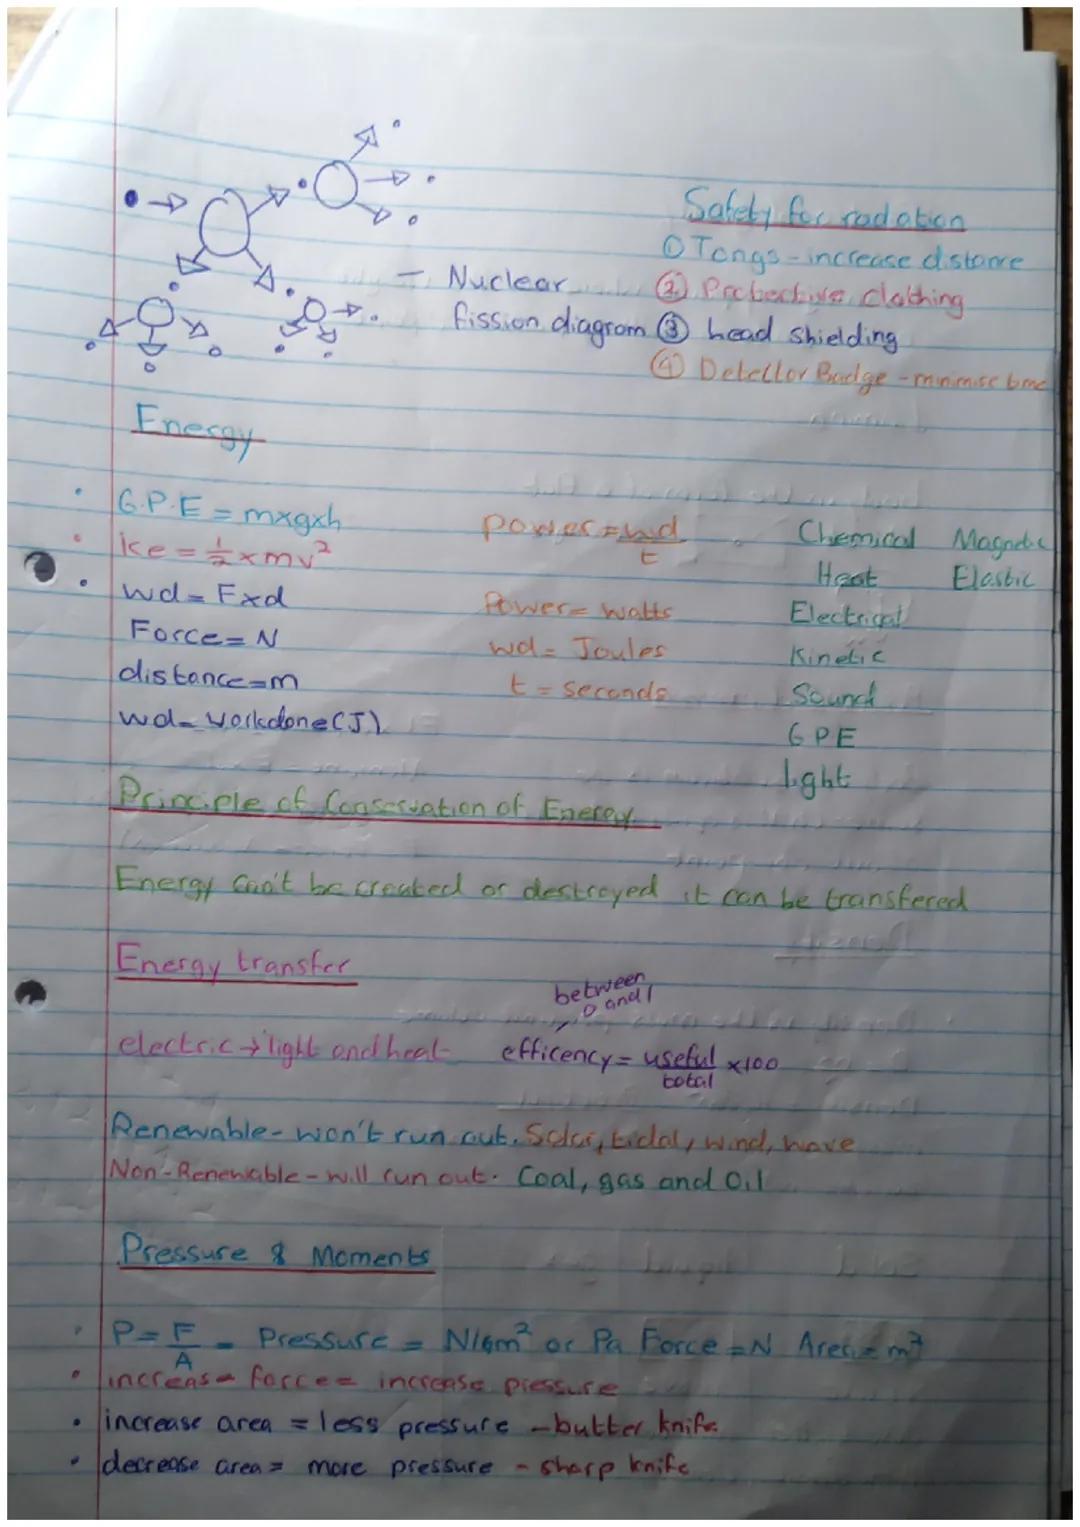 Safety for radation
① Tongs - increase distance
② Protective clothing
- Nuclear
fission diagram
③ head shielding
④ Detellor Badge - minimise time
Energy
G.P.E = mxgxh
ke = ½ x mv²
wd = Fxd
Force = N
distance = m
wd = workdone (J)
power = wd/t
Power = watts
wd = Joules
t = seconds
Chemical Magnetic
Heat Elastic
Electrical
Kinetic
Sound
GPE
light
Principle of Conservation of Energy
Energy can't be created or destroyed it can be transfered
Energy transfer
between
0 and 1
electric → light and heat
efficency = useful/total x100
Renewable - won't run out. Solar, tidal, wind, wave
Non-Renewable - will run out. Coal, gas and Oil
Pressure & Moments
P = F/A - Pressure = N/m² or Pa Force = N Area = m²
increase force = increase pressure
increase area = less pressure - butter knife
decrease area = more pressure - sharp knife